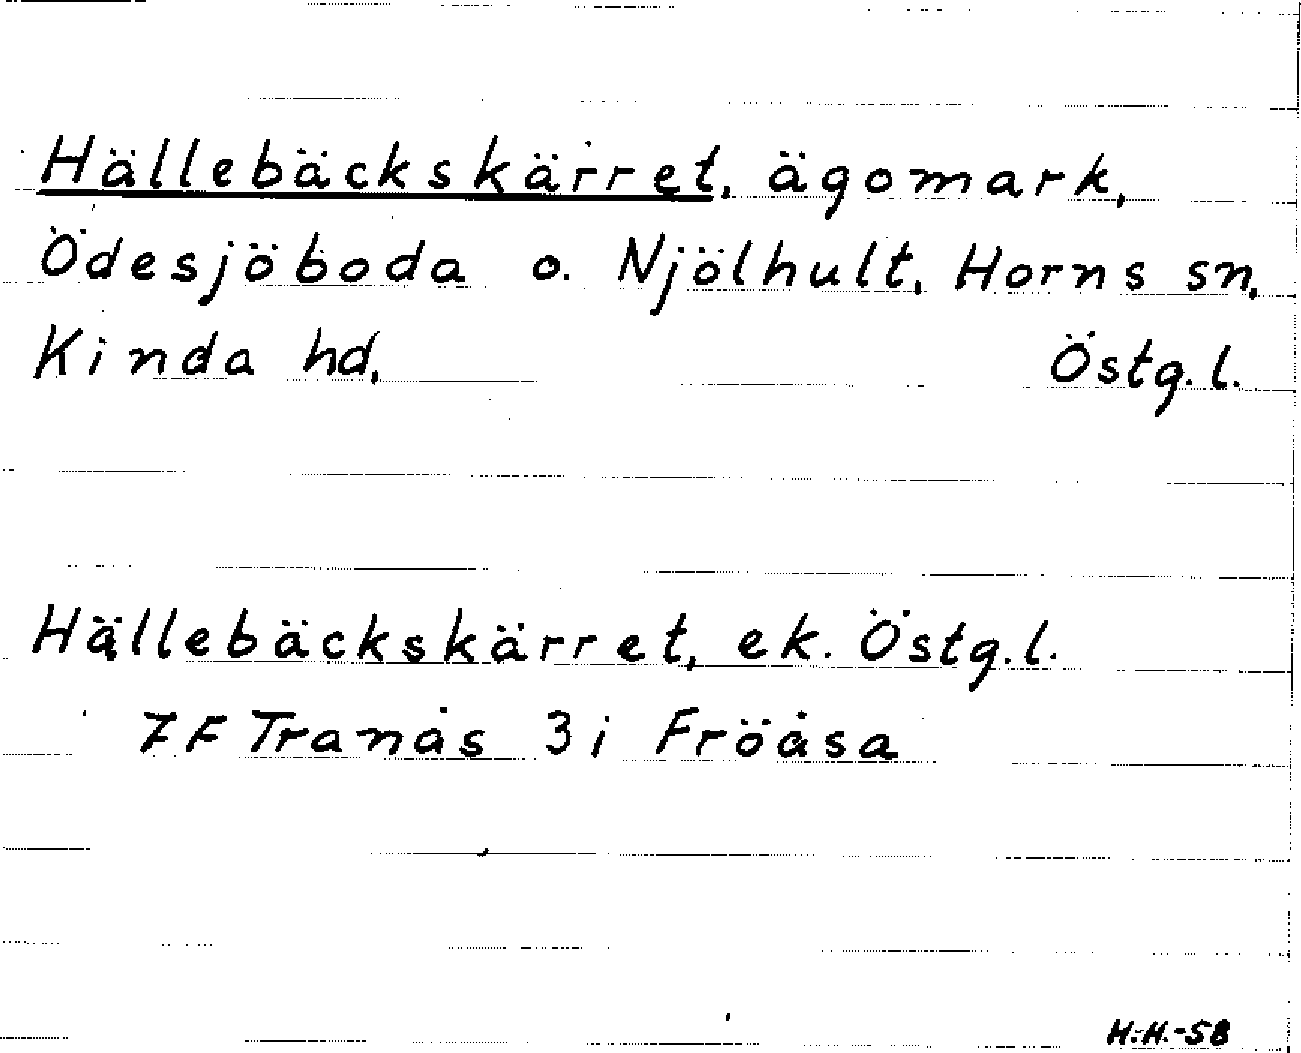 Hällebäckskärret, ägomark,
Ödesjöboda o. Njölhult, Horns sn,
Kinda hd, Östg.l.
Hällebäckskärret, ek. Östg.l.
7F Tranås 3i Fröåsa
H.H.-58